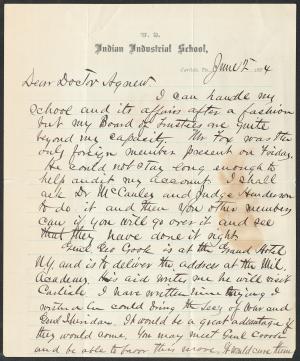 U. S.
Indian Industrial School,
Carlisle, Pa., June 2 1884
Dear Doctor Agnew.
I can handle my
school and its affairs after a fashion
but my Board of Trustees are quite
beyond my capacity. Mr Fox was the
only foreign member present on Friday.
He could not stay long enough to
help audit my account. I shall
ask Dr McCauley and Judge Henderson
to do it and then you other members
can if you will go over it and see
that they have done it right.
Genl Geo Crook is at the Grand Hotel
N.Y. and is to deliver the address at the Mil.
Academy. He said write me he will visit
Carlisle I have written him
wished he could bring the Secy of War and
Genl Sheridan. It would be a great advantage if
they would come. You may meet Genl Crook
and be able to favor this move. It would cure them